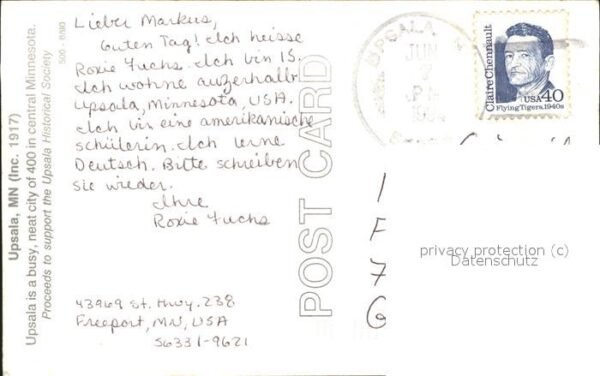 Upsala, MN (Inc. 1917)
Upsala is a busy, neat city of 400 in central Minnesota.
Proceeds to support the Upsala Historical Society
500 - 8/90
Lieber Markus,
Guten Tag! Ich heisse
Roxie Fuchs. Ich bin 15.
Ich wohne außerhalb
Upsala, Minnesota, USA.
Ich bin eine amerikanische
schülerin. Ich lerne
Deutsch. Bitte schreiben
sie wieder.
Ihre
Roxie Fuchs
43969 St. Hwy. 238
Freeport, MN, USA
56331-9621
POST CARD
UPSALA
JUN
PM
Claire Chennault
USA 40
Flying Tigers, 1940s
1
F
7
G
privacy protection (c)
Datenschutz